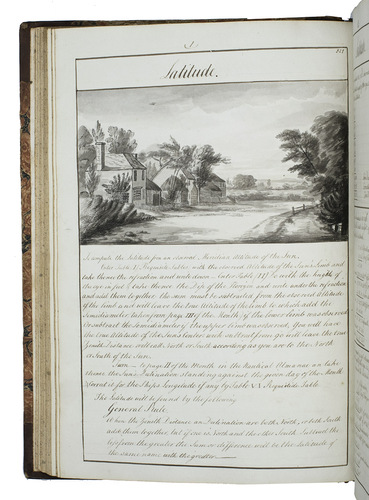 Latitude.
To compute the Latitude from an observed Meridian Altitude of the Sun.
Enter Table I Requisite Tables with the observed Altitude of the Sun's Limb and
take thence the refraction enter Table III with the height of
the eye in feet & take thence the Dip of the Horizon and write under the refraction
and add them together the sum must be subtracted from the observed Altitude
of the Limb and will leave the true Altitude of the Limb to which add the
Semidiameter taken from page III of the Month, if the lower limb was observed
Or subtract the Semidiameter if the upper limb was observed, You will have
the true Altitude of the Suns Center which subtract from 90 will leave the true
Zenith Distance call it North or South according as you are to the North
or South of the Sun.
Turn to page II of the Month in the Nautical Almanac an take
thence the Suns Declination standing against the given day of the Month
Correct it for the Ships Longitude if any by Table VI Requisite Table
The Latitude will be found by the following
General Rule
When the Zenith Distance an Declination are both North, or both South
add them together, but if one is North and the other South Subtract the
less from the greater the Sum or difference will be the Latitude of
the same name with the greater